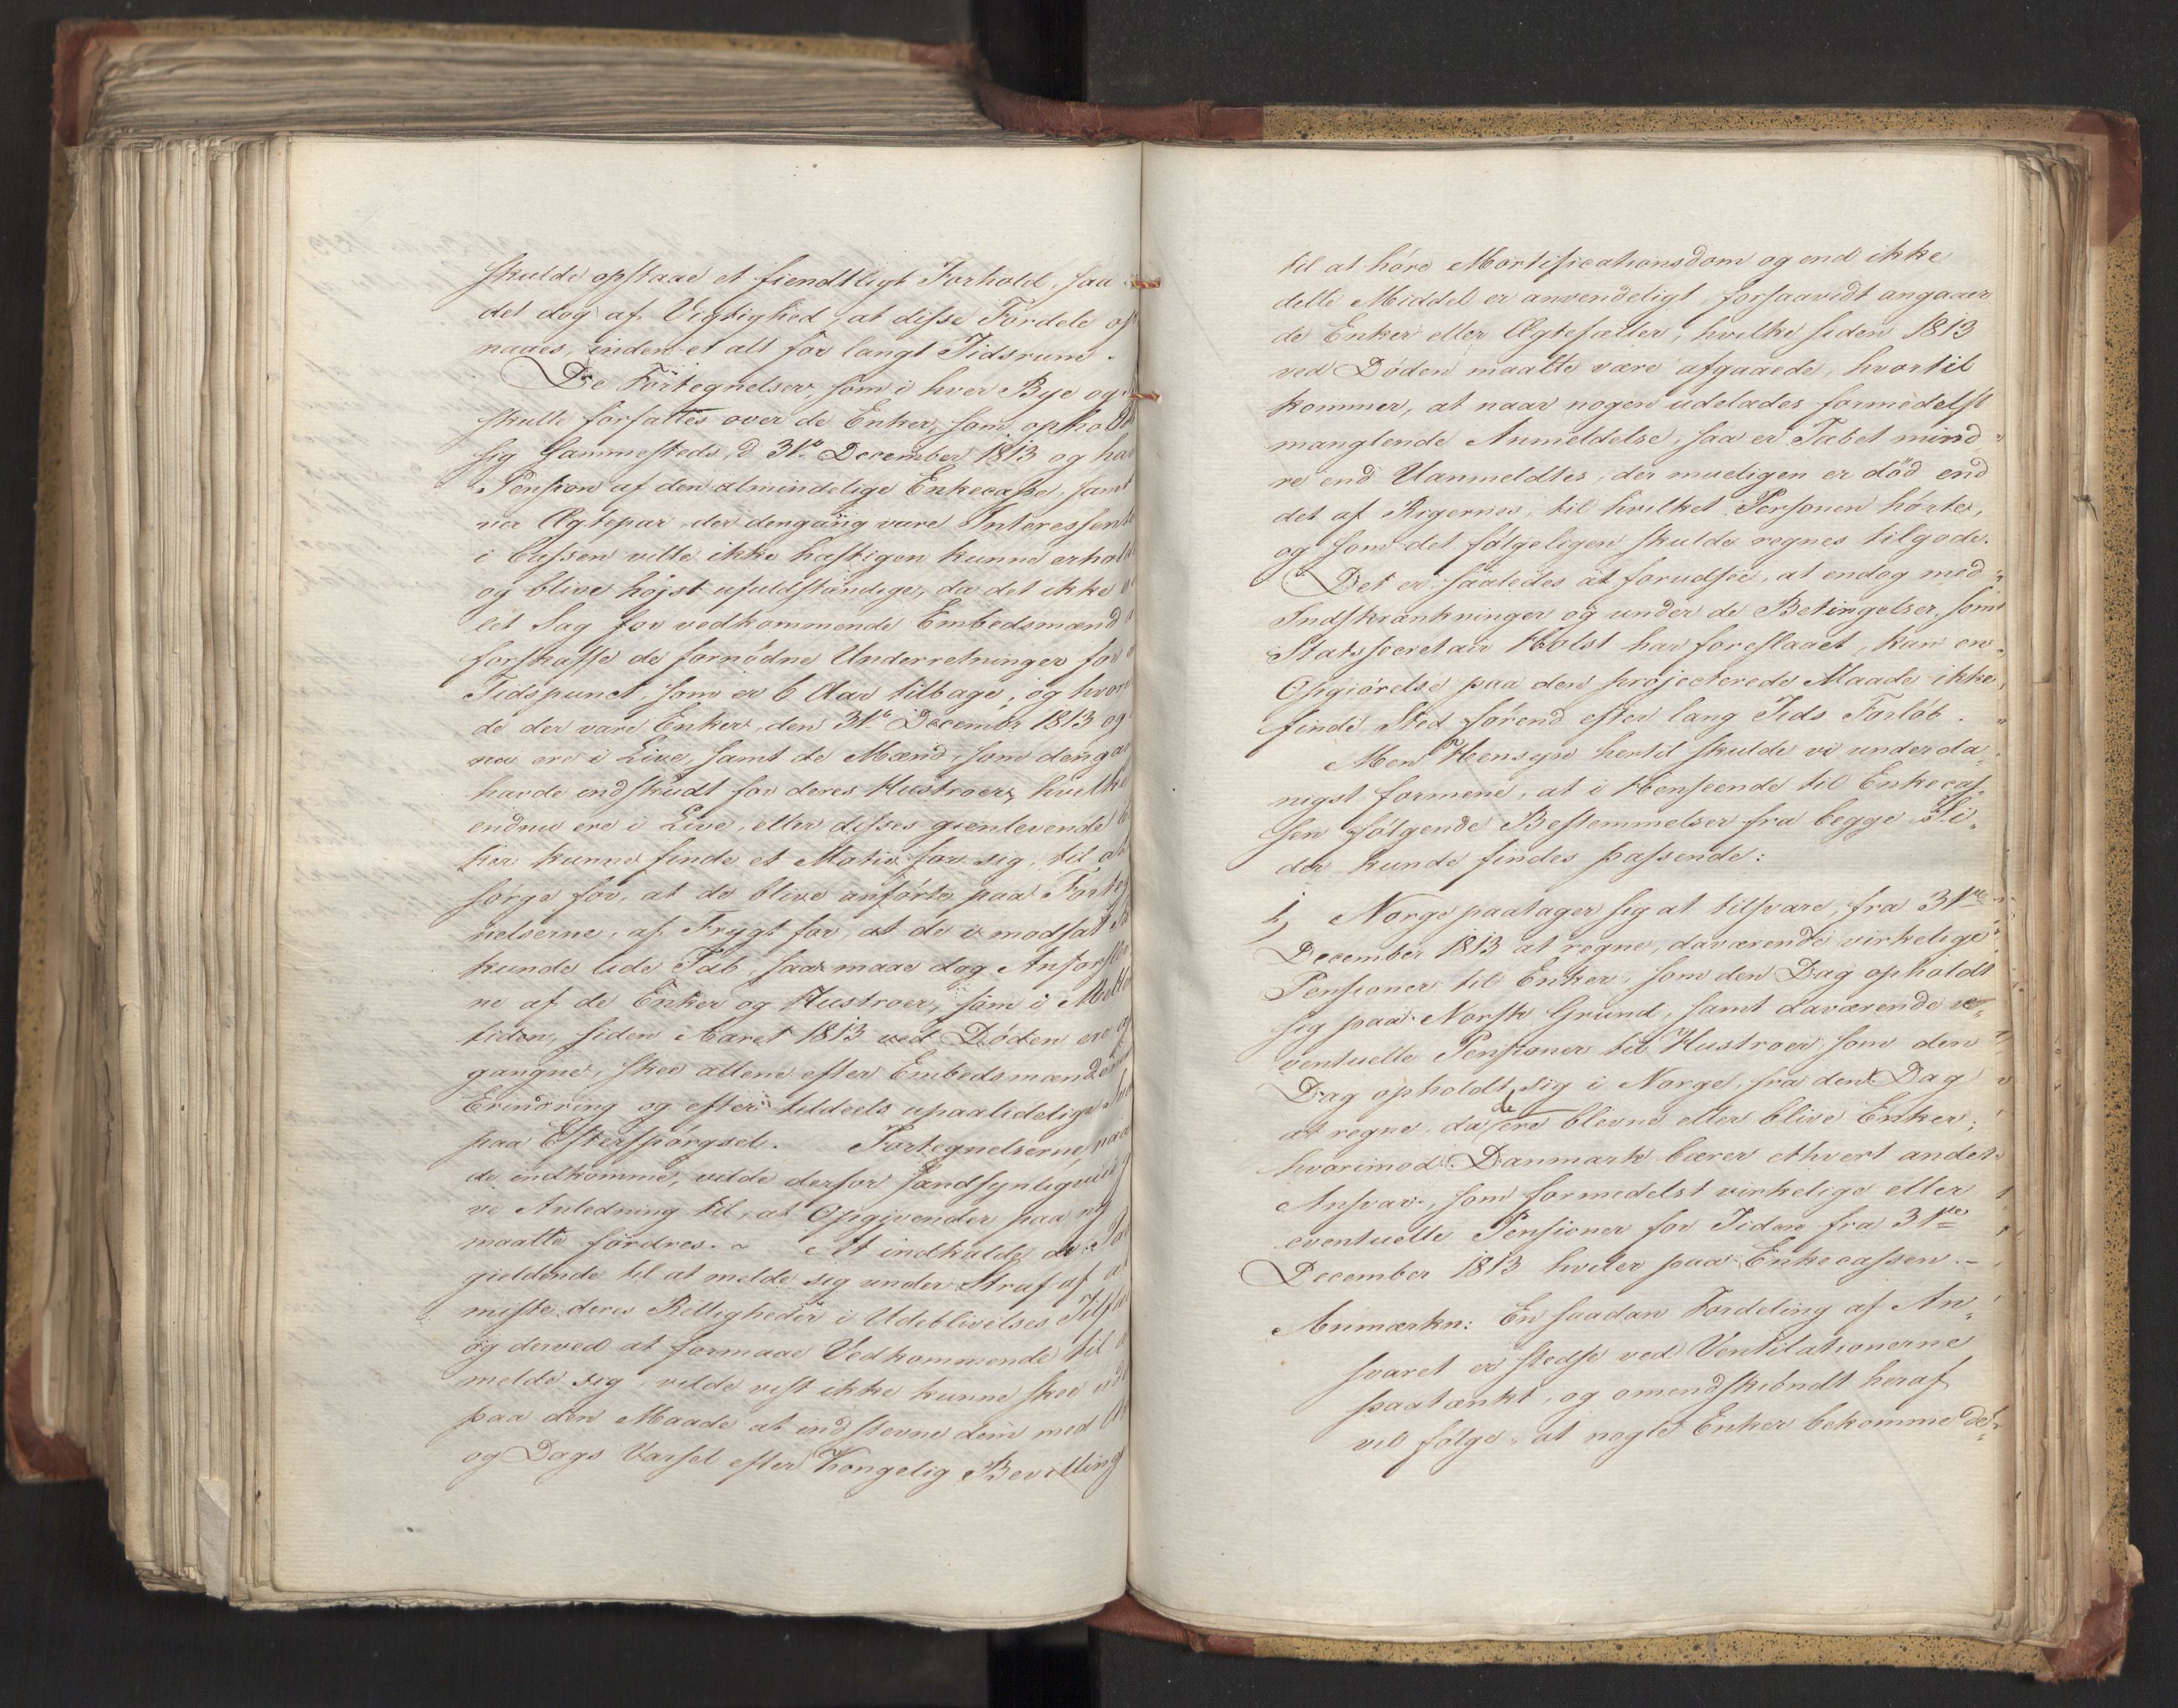 skulde opstaae et fiendtligt Forhold, saa
det dog af Vigtighed, at disse Fordele op
naaes, inden et alt for langt Tidsrum.
De Fortegnelser, som i hver Bye og
skulle forfattes over de Enker, som opholdt
sig sammesteds, d 31te December 1813 og har
Pension af den almindelige Enkecasse, samt
Ægtepar, der dengang vare Interessente
i Cassen ville ikke hastigen kunne erhol
og blive højst ufuldstændige, da det ikke
let Sag for vedkommende Embedsmænd
forskaffe de fornødne Underretninger for
Tidspunct, som er 6 Aar tilbage, og hvor
de der vare Enker, den 31te Decembr 1813 og
nu ere i Live, samt de Mænd, som dengan
havde indskudt for deres Hustroer, hvilke
endnu ere i Live, eller disses gienlevende
ker kunne finde et Motiv for sig, til at
sørge for, at de blive anførte paa Forteg
nelserne, af Frygt for, at de i modsat
kunde lide Tab, saa maae dog Anførsle
ne af de Enker og Hustroer, som i Melle
tiden, siden Aaret 1813 ved Døden ere
gangne, skee allene efter Embedsmænde
Erindring og efter tildeels upaalidelige
paa Efterspørgsel. Fortegnelserne, naa
de indkomme, vilde derfor sandsynligviis
ve Anledning til, at Opgivender paa ny
maatte fordres. ~ At indkalde de
gieldende til at melde sig under Straf af
miste deres Rettigheder i Udeblivelses Tilf
og derved at formaae Vedkommende til
melde sig, vilde vist ikke kunne skee
paa den Maade at indstevne dem med
og Dags Varsel efter Kongelig Bevilling
til at høre Mortificationsdom og end ikke
dette Middel er anvendeligt, forsaavidt angaaer
de Enker eller Ægtefæller, hvilke siden 1813
ved Døden maatte være afgaaede, hvortil
kommer, at naar nogen udelades formedelst
manglende Anmeldelse, saa er Tabet mind„
re end Uanmeldtes, der mueligen er død end
det af Rigernes, til hvilket Personen hørte,
og som det følgeligen skulde regnes tilgode.
Det er saaledes at forudsee, at endog med
Indskrænkninger og under de Betingelser, som
Statssecretair Holst har foreslaaet, kan en
Opgiørelse paa den projecterede Maade ikke
finde Sted førend efter lang Tids Forløb.
Men Hensyn hertil skulde vi underda„
nigst formene, at i Henseende til Enkecas„
sen følgende Bestemmelser fra begge Si„
der kunde findes passende:
1, Norge paatager sig at tilsvare, fra 31te
December 1813 at regne, daværende virkelige
Pensioner til Enker, som den Dag opholdt
sig paa Norsk Grund, samt daværende e„
ventuelle Pensioner til Hustroer, som den
Dag opholdt sig i Norge, fra den Dag
at regne, da de ere blevne eller blive Enker;
hvorimod Danmark bærer ethvert andet
Ansvar, som formedelst virkelige eller
eventuelle Pensioner for Tiden fra 31te
December 1813 hviler paa Enkecassen. –
Anmærkn: En saadan Fordeling af An„
svaret er stedse ved Ventilationerne
paatænkt, og omendskiøndt heraf
vil følge, at nogle Enker bekomme de„